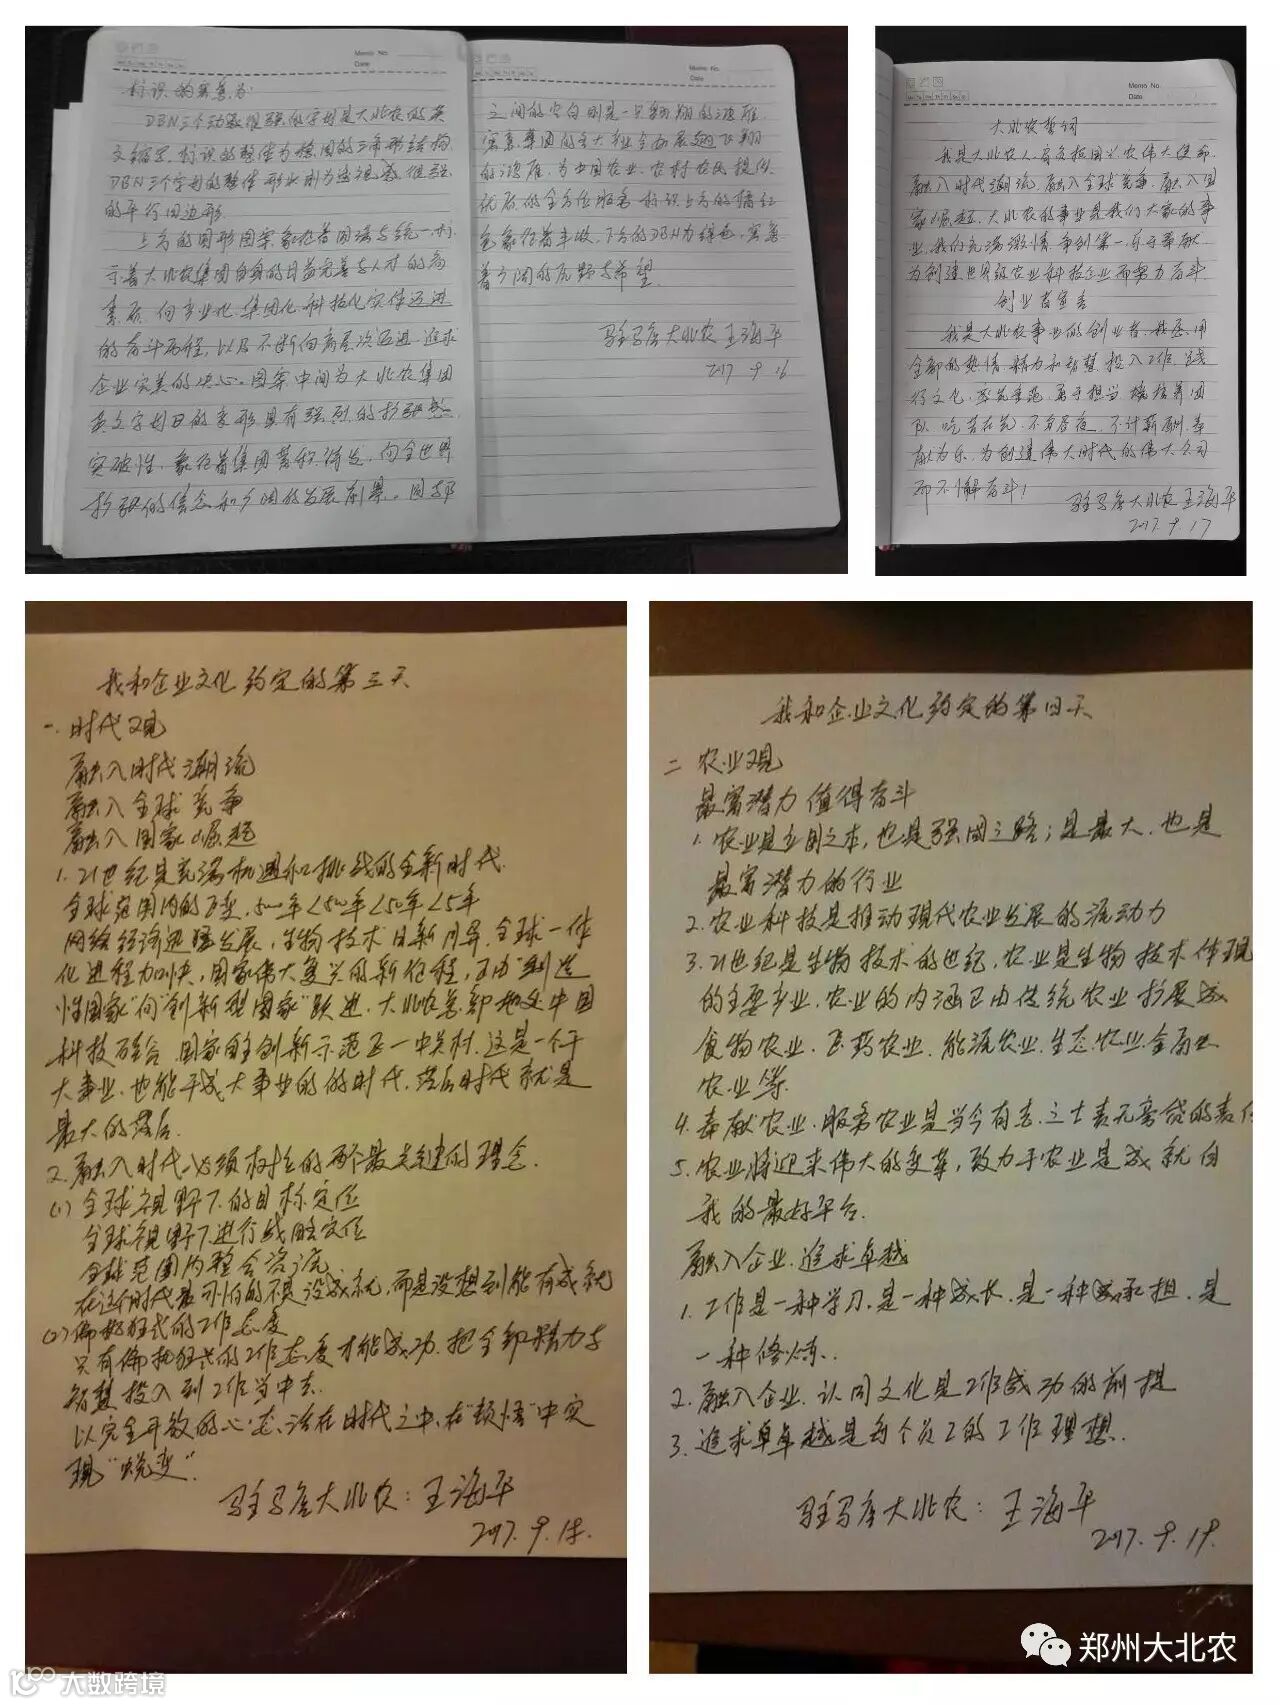 Memo No.
Date
标识的寓意为:
DBN三个动感很强的字母是大北农的英
文缩写.标识的整体为稳固的三角形结构
DBN三个字母的整体形状则为速很感很强
的平行四边形.
上方的圆形图案象征着圆满与统一.标
示着大北农集团自身的日益完善与人才的高
素质.向专业化.集团化.科技化实体迈进
的奋斗历程,以及不断向高层次迈进.追求
企业完美的决心.图案中间为大北农集团
英文字母B的变形具有强烈的扩张感
突破性.象征着集团蓄积待发,向全世界
扩张的信念和广阔的发展前景.图与B
之间的空白则是一只翱翔的鸿雁
寓意集团的全大事业全面展翅飞翔
的鸿雁.为中国农业.农村农民提供
优质的全方位服务 标识上方的橘红
色象征着丰收.下方的DBN为绿色,寓意
着广阔的原野与希望.
驻马店大北农 王海平
2017.9.16
Memo No.
Date
大北农誓词
我是大北农人.肩负报国兴农伟大使命.
融入时代潮流.融入全球竞争.融入国
家崛起.大北农的事业是我们大家的事
业.我们充满激情.争创第一.乐于奉献.
为创建世界级农业科技企业而努力奋斗
创业者宣言
我是大北农事业的创业者.我愿.用
全部的热情.精力和智慧.投入工作.践
行文化.率先垂范.勇于担当.培养团
队.吃苦在先.不分昼夜.不计薪酬.奉
献为乐.为创建伟大时代的伟大公司
而不懈奋斗!
驻马店大北农 王海平
2017.9.17
我和企业文化约定的第三天
一.时代观
融入时代潮流
融入全球竞争
融入国家崛起
1.21世纪是充满机遇和挑战的全新时代.
全球范围内的巨变.500年<500年<50年<5年
网络经济迅猛发展,生物技术日新月异.全球一体
化进程加快,国家伟大复兴的新征程,正由“制造
性国家”向“创新型国家”跃进.大北农总部地处中国
科技硅谷.国家自主创新示范区一中关村.这是一个干
大事业.也能干成大事业的的时代.落后时代就是
最大的落后.
2.融入时代必须树立的两个最关键的理念.
(1)全球视野下的目标定位
全球视野下进行战略定位
全球范围内整合资源
在这个时代最可怕的不是没成就,而是没想到能有成就
(2)偏执狂式的工作态度
只有偏执狂式的工作态度才能成功.把全部精力与
智慧投入到工作当中去.
以完全开放的心态.活在时代之中.在“顿悟”中实
现“蜕变”.
驻马店大北农:王海平
2017.9.18.
我和企业文化约定的第四天
二 农业观
最富潜力 值得奋斗
1.农业是立国之本,也是强国之路;是最大.也是
最富潜力的行业
2.农业科技是推动现代农业发展的源动力
3.21世纪是生物技术的世纪,农业是生物技术体现
的主要产业.农业的内涵已由传统农业扩展成
食物农业.医药农业.能源农业.生态农业.金属
农业等.
4.奉献农业.服务农业是当今有志之士责无旁贷的责任
5.农业将迎来伟大的变革,致力于农业是成就自
我的最好平台.
融入企业.追求卓越
1.工作是一种学习.是一种成长.是一种承担.是
一种修炼.
2.融入企业.认同文化是工作成功的前提
3.追求卓越是每个员工的工作理想.
驻马店大北农:王海平
2017.9.19.
郑州大北农
大数跨境